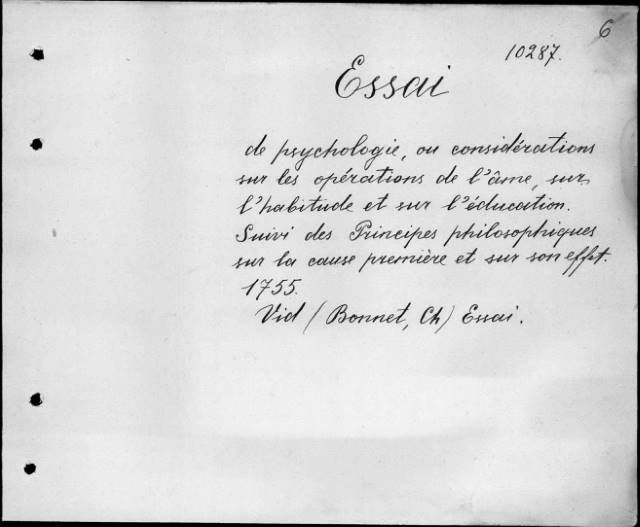 6
10287.
Essai
de psychologie, ou considérations
sur les opérations de l'âme, sur
l'habitude et sur l'éducation.
Suivi des Principes philosophiques
sur la cause première et sur son effet.
1755.
Vid (Bonnet, Ch) Essai.